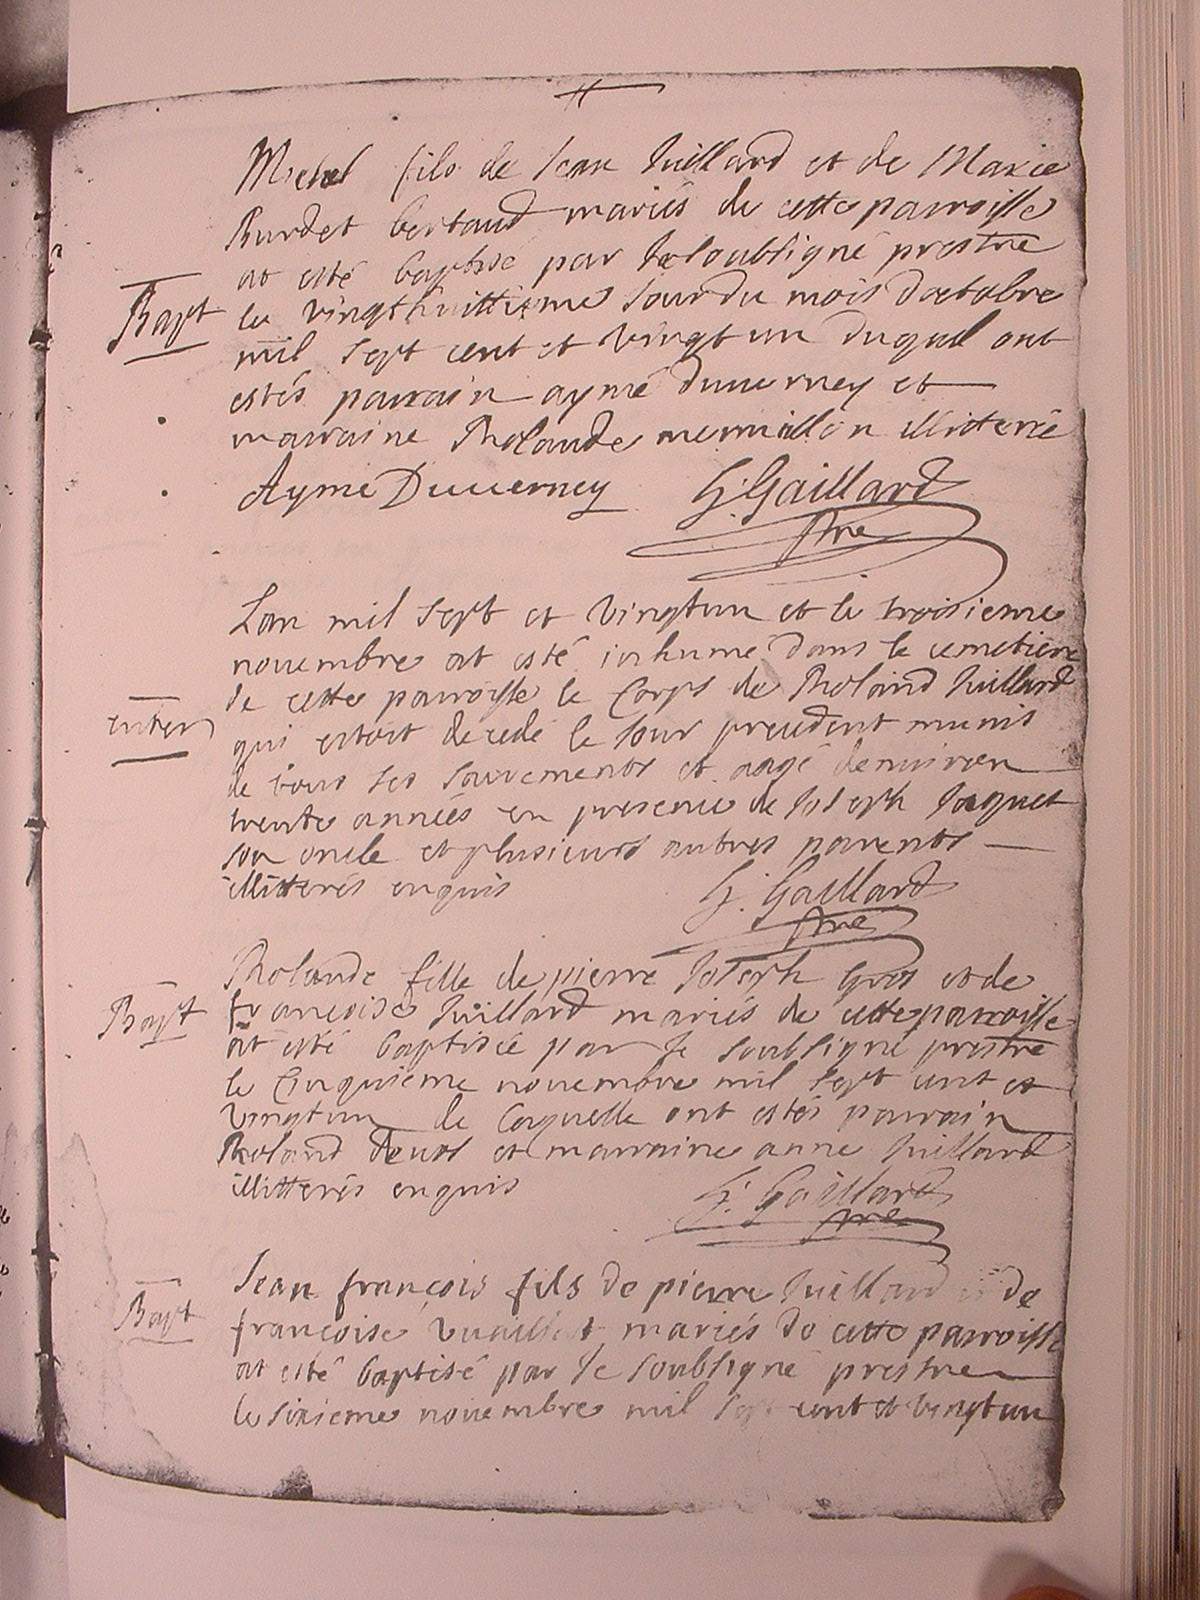 Michel fils de Jean Juillard et de Marie
Burdet bertaud mariés de cette parroisse
at esté baptisé par Je soubsigné prestre
Bapt
le vingthuittieme Jour du mois d'octobre
mil sept cent et vingt un duquel ont
estés parrain aymé duuerney et
marraine Rolande mermillon illiterée
Aymé Duuerney G. Gaillard
ptre
Lan mil sept et vingtun et le troisieme
nouembre at esté inhumé dans le cemetiere
de cette parroisse le Corps de Roland Juillard
enterr
qui estoit decedé le Jour precedent munis
de tous ses sacrements et aagé denuiron
trente années en presence de Joseph Jaquet
son oncle et plusieurs autres parents
illitterés enquis G. Gaillard
ptre
Rolande fille de pierre Joseph Gros et de
Bapt
françoise Juillard mariés de cette parroisse
at esté baptisée par Je soubsigné prestre
le Cinquieme nouembre mil sept cent et
vingtun de laquelle ont estés parrain
Roland et marraine anne Juillard
illitterés enquis G. Gaillard
ptre
Jean françois fils de pierre Juillard et de
Bapt
françoise mariés de cette parroisse
at esté baptisé par Je soubsigné prestre
le sixieme nouembre mil sept cent et vingtun